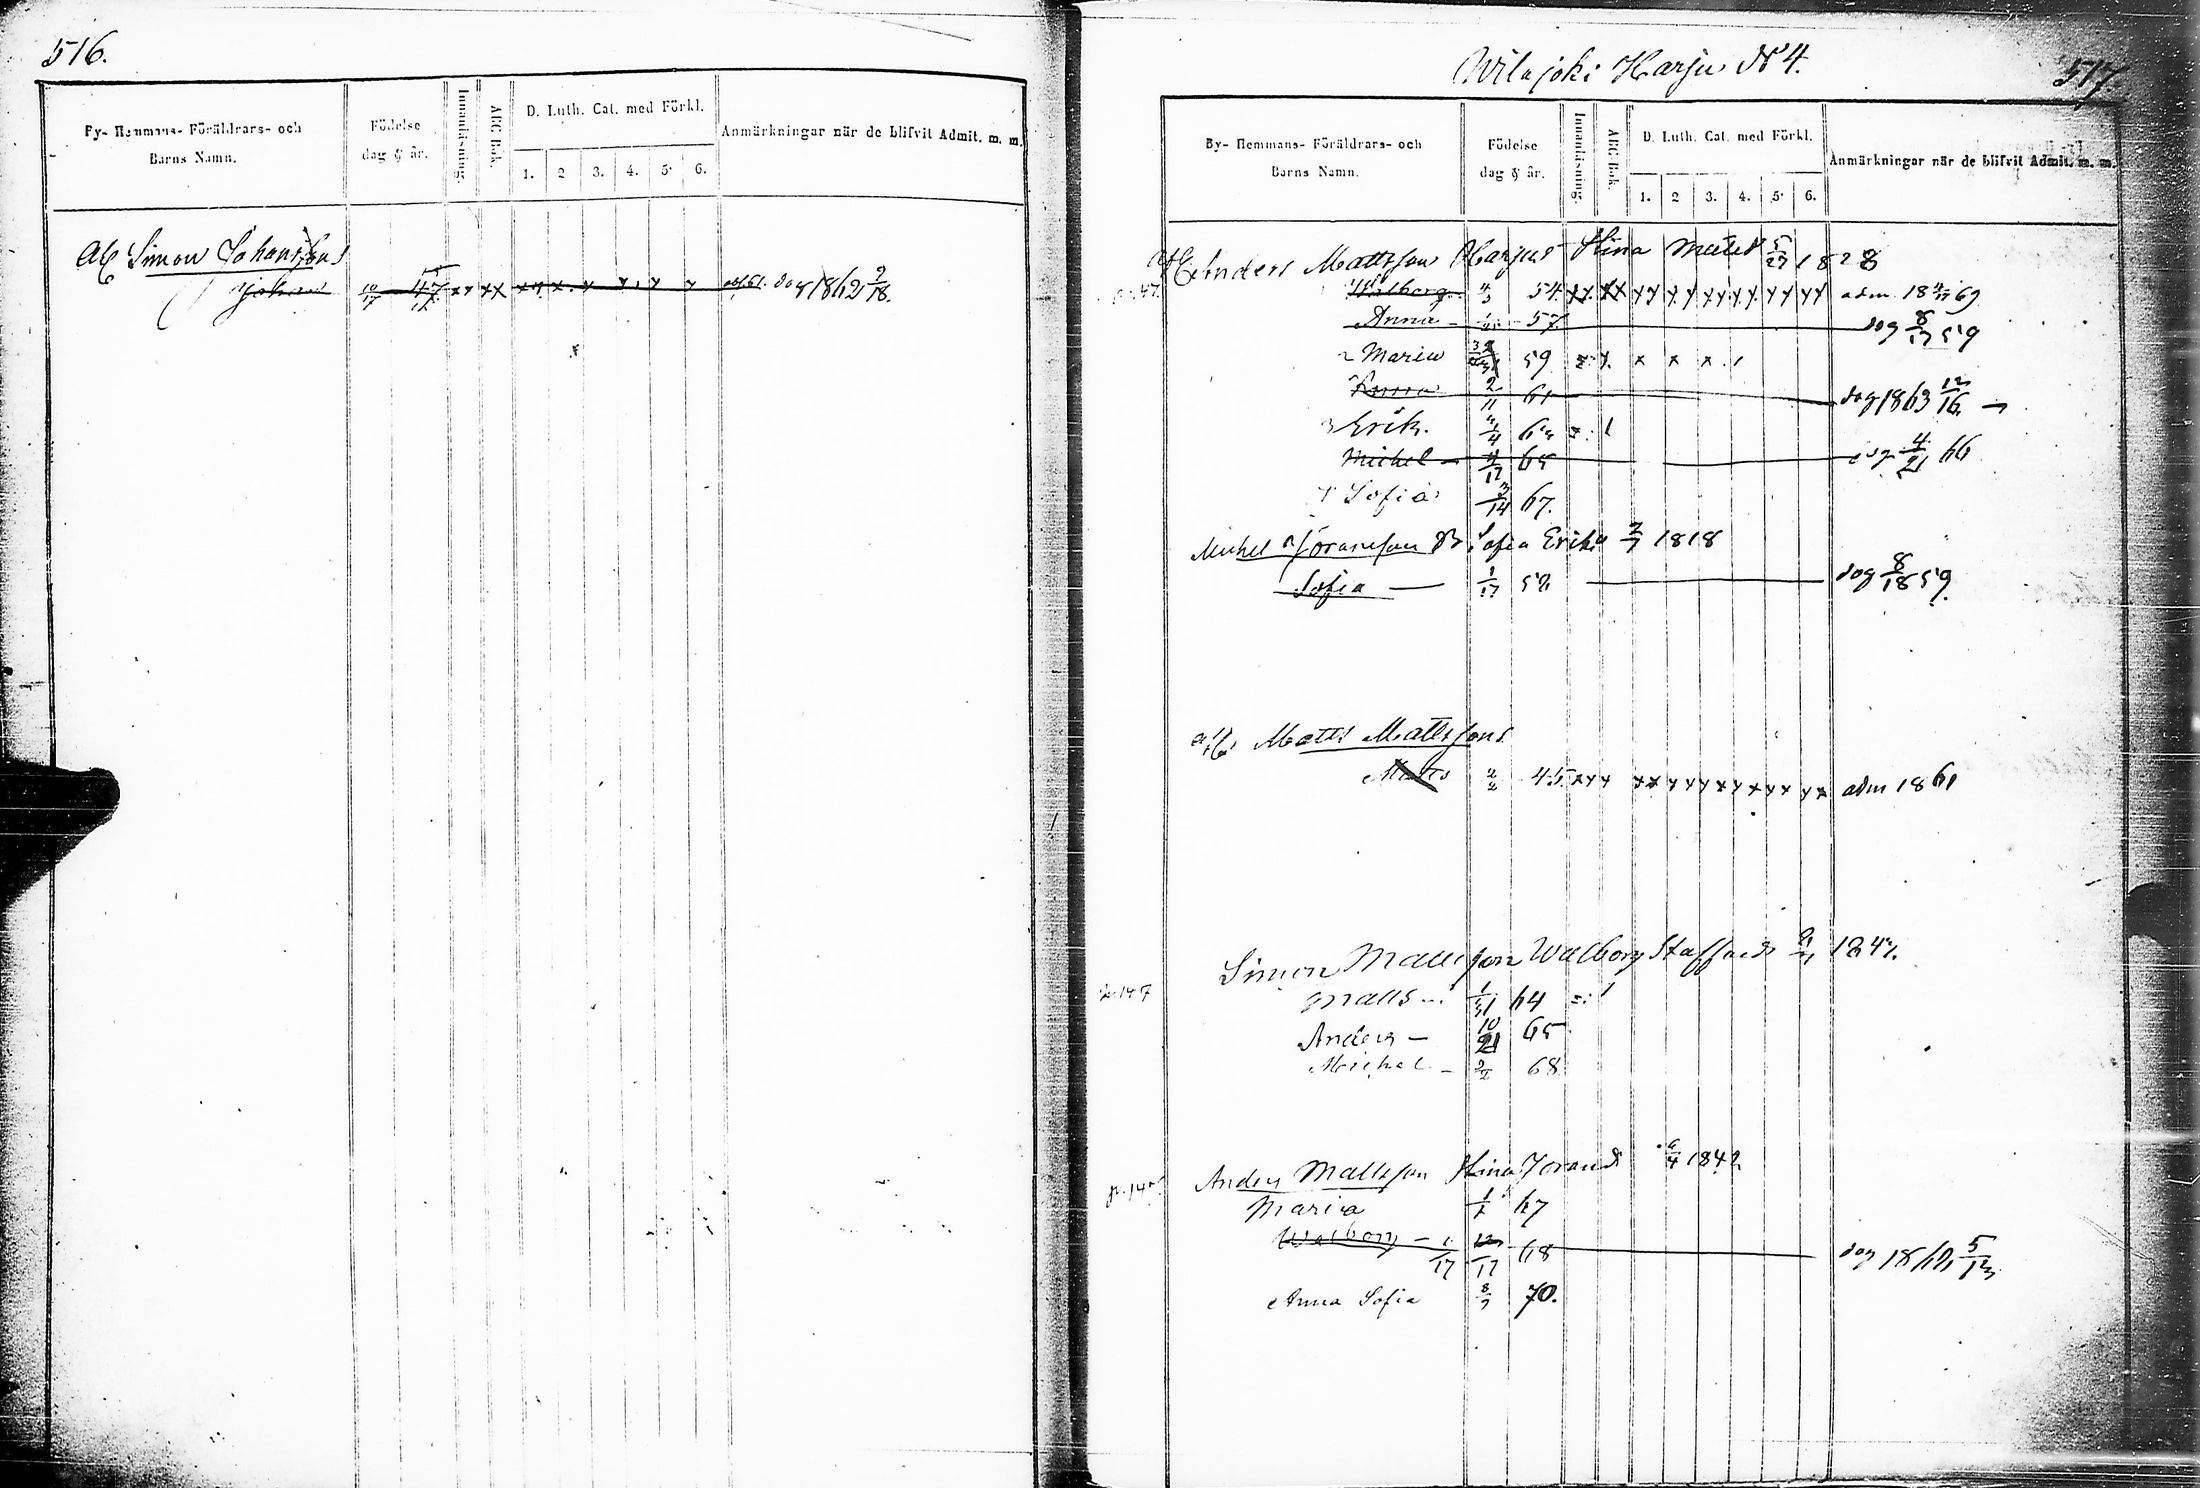 516.
By- Hemmans- Föräldrars- och Barns Namn.
Födelse dag & år.
Innanläsning.
ABC Bok.
D. Luth. Cat. med Förkl.
1. 2 3. 4. 5. 6.
Anmärkningar när de blifvit Admit. m. m.
Simon Johanssons
Johan 10/17 47 x x x x x x x. y y. y y y 1862 2/18.
Wilajoki Harju N 4.
517.
By- Hemmans- Föräldrars- och Barns Namn.
Födelse dag & år.
Innanläsning.
ABC Bok.
D. Luth. Cat. med Förkl.
1. 2 3. 4. 5. 6.
Anmärkningar när de blifvit Admit. m. m.
Anders Mattsson Harju Stina Matts 5/27 1828
Walborg 4/3 54. adm. 18 69
Anna 57. dog 8/17 59
2 Maria 59
Anna 2/11 61 dog 1863 12/16
3 Erik. 4/4 64
Michel 4/12 65 dog 4/21 66
Sofia 3/14 67.
Michel Göransson Sofia Eriks 2/7 1818
Sofia 1/17 58 dog 8/18 59.
Matts Mattssons
Matts 2/2 45. adm 1861
Simon Mattsson Walborg Staffans 184
Matts 1/31 64
Anders 10/21 65
Michel 2/2 68
Anders Mattsson Stina Jorans 6/4 1842
Maria 67
Walborg 1/17 12/17 68 dog 18 5/13
Anna Sofia 8/7 70.